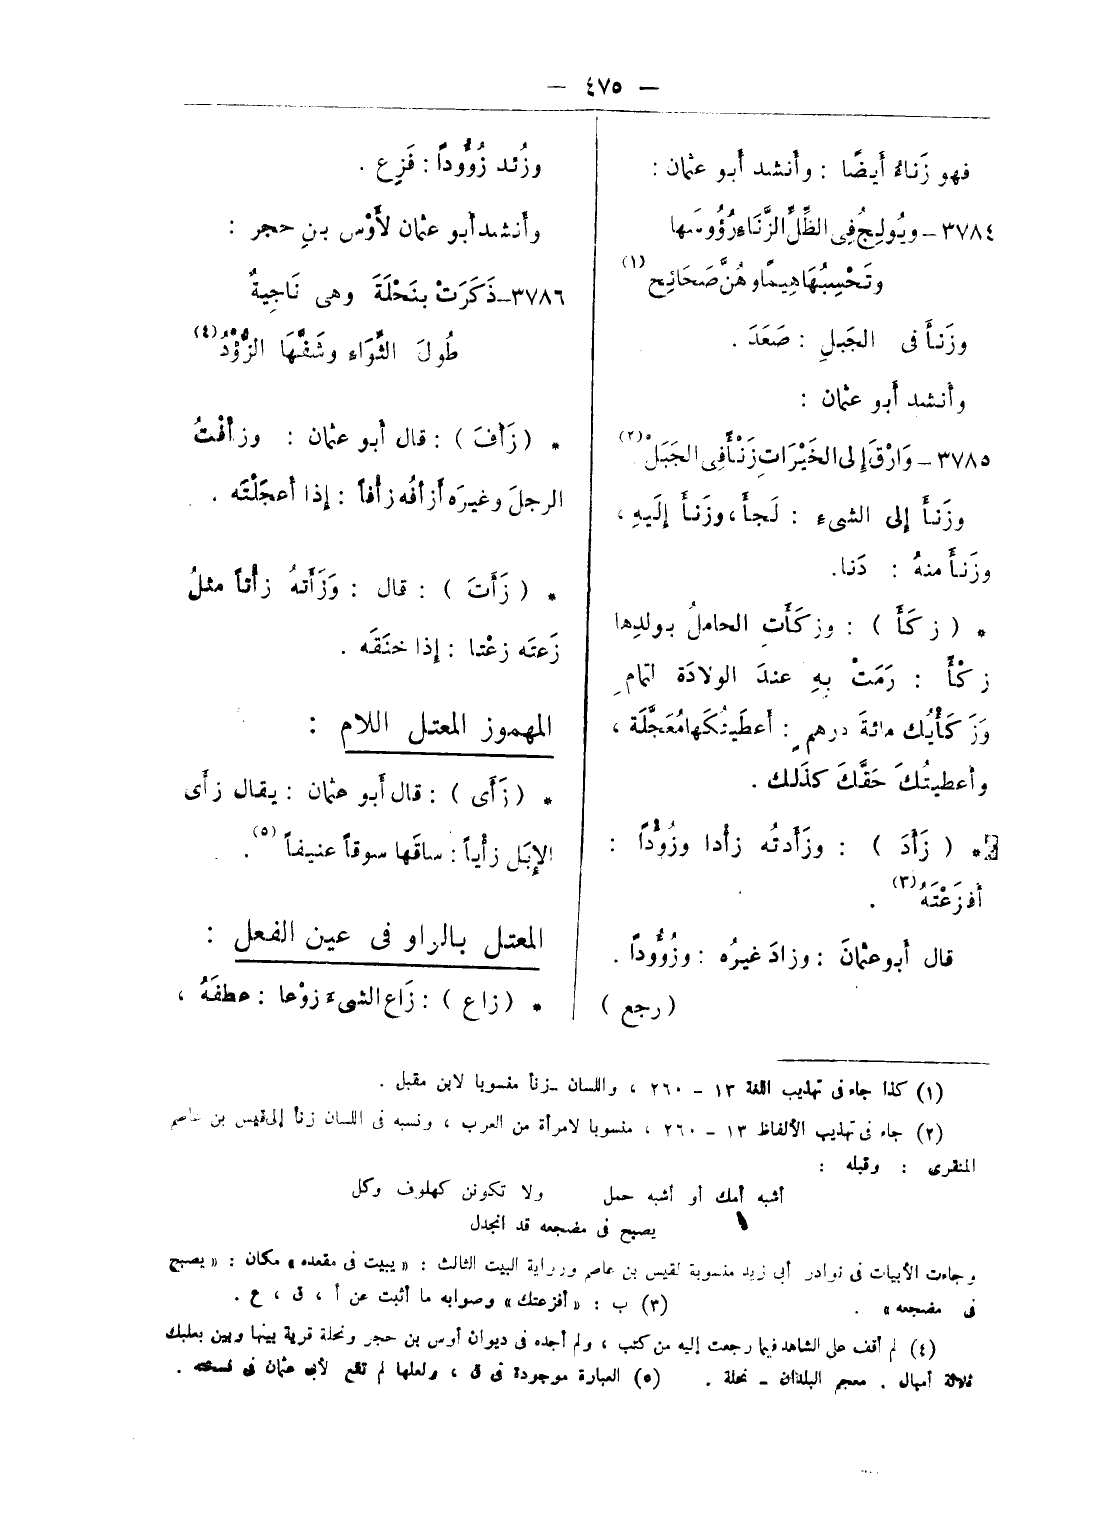 — ٤٧٥ —
فهو زَناءُ أَيضًا : وأَنشد أَبو عثمان :
٣٧٨٤ – ويُولِجُ فِى الظِّلِّ الزَّنَاءِ رُؤُوسَها
وتَحْسِبُهَا هِيمًا وهُنَّ صَحَائِح (١)
وزَنأَ فى الجَبلِ : صَعَدَ .
وأَنشد أَبو عثمان :
٣٧٨٥ – وَارْقَ إِلى الخَيْرَاتِ زَنْأً فِى الجَبَلْ (٢)
وزَنأَ إِلى الشىءِ : لَجأَ ، وزَنأَ إِلَيهِ ،
وزَنأَ منهُ : دَنا.
* ( زكَأَ ) : وزكَأَتِ الحاملُ بولدِها
زكْأً : رَمَتْ بِهِ عندَ الولادَة اتمامِ
وَزَكَأْتُك مائةَ درهمٍ : أَعطَيتُكَها مُعَجَّلَة ،
وأَعطيتُكَ حَقَّكَ كذَلك .
* ( زَأَدَ ) : وزَأَدتُه زأْدا وزُؤْداً :
أَفزَعْتَهُ (٣) .
قال أَبو عثمانَ : وزادَ غيرُه : وزُؤُوداً .
( رجع )
وزُئد زُؤُوداً : فَزِع .
وأَنشد أَبو عثمان لأَوْس بنِ حجر :
٣٧٨٦ – ذَكَرَتْ بنَحْلَةَ وهى نَاجِيةٌ
طُولَ الثَّوَاءِ وشَفَّهَا الزُّؤْدُ (٤)
* ( زَأَفَ ) : قال أَبو عثمان : وزأَفْتُ
الرجلَ وغيرَه أَزأَفُه زأْفاً : إِذا أَعجَلْتَه .
* ( زَأَتَ ) : قال : وَزَأَتهُ زأْتاً مثلُ
زَعتَه زعْتا : إِذا خنَقَه .
المهموز المعتل اللام :
* ( زَأَى ) : قال أَبو عثمان : يقال زأَى
الإِبَل زأْياً : ساقَها سوقاً عنيفاً (٥) .
المعتل بالراو فى عين الفعل :
* ( زاع ) : زَاع الشىءَ زوْعا : عطفَهُ ،
(١) كذا جاء فى تهذيب اللغة ١٣ – ٢٦٠ ، واللسان – زنأ منسوبا لابن مقبل .
(٢) جاء فى تهذيب الألفاظ ١٣ – ٢٦٠ ، منسوبا لامرأة من العرب ، ونسبه فى اللسان زنأ إلى قيس بن عاصم
المنقرى : وقبله :
أشبه أمك أو أشبه حمل ولا تكونن كهلوف وكل
يصبح فى مضجعه قد انجدل
وجاءت الأبيات فى نوادر أبى زيد منسوبة لقيس بن عاصم ورواية البيت الثالث : « يبيت فى مقعده » مكان : « يصبح
فى مضجعه » . (٣) ب : « أفزعتك » وصوابه ما أثبت عن أ ، ق ، ع .
(٤) لم أقف على الشاهد فيما رجعت إليه من كتب ، ولم أجده فى ديوان أوس بن حجر ونحلة قرية بينها وبين بعلبك
ثلاثة أميال . معجم البلدان – نحلة . (٥) العبارة موجودة فى ق ، ولعلها لم تقع لأبى عثمان فى نسخته .